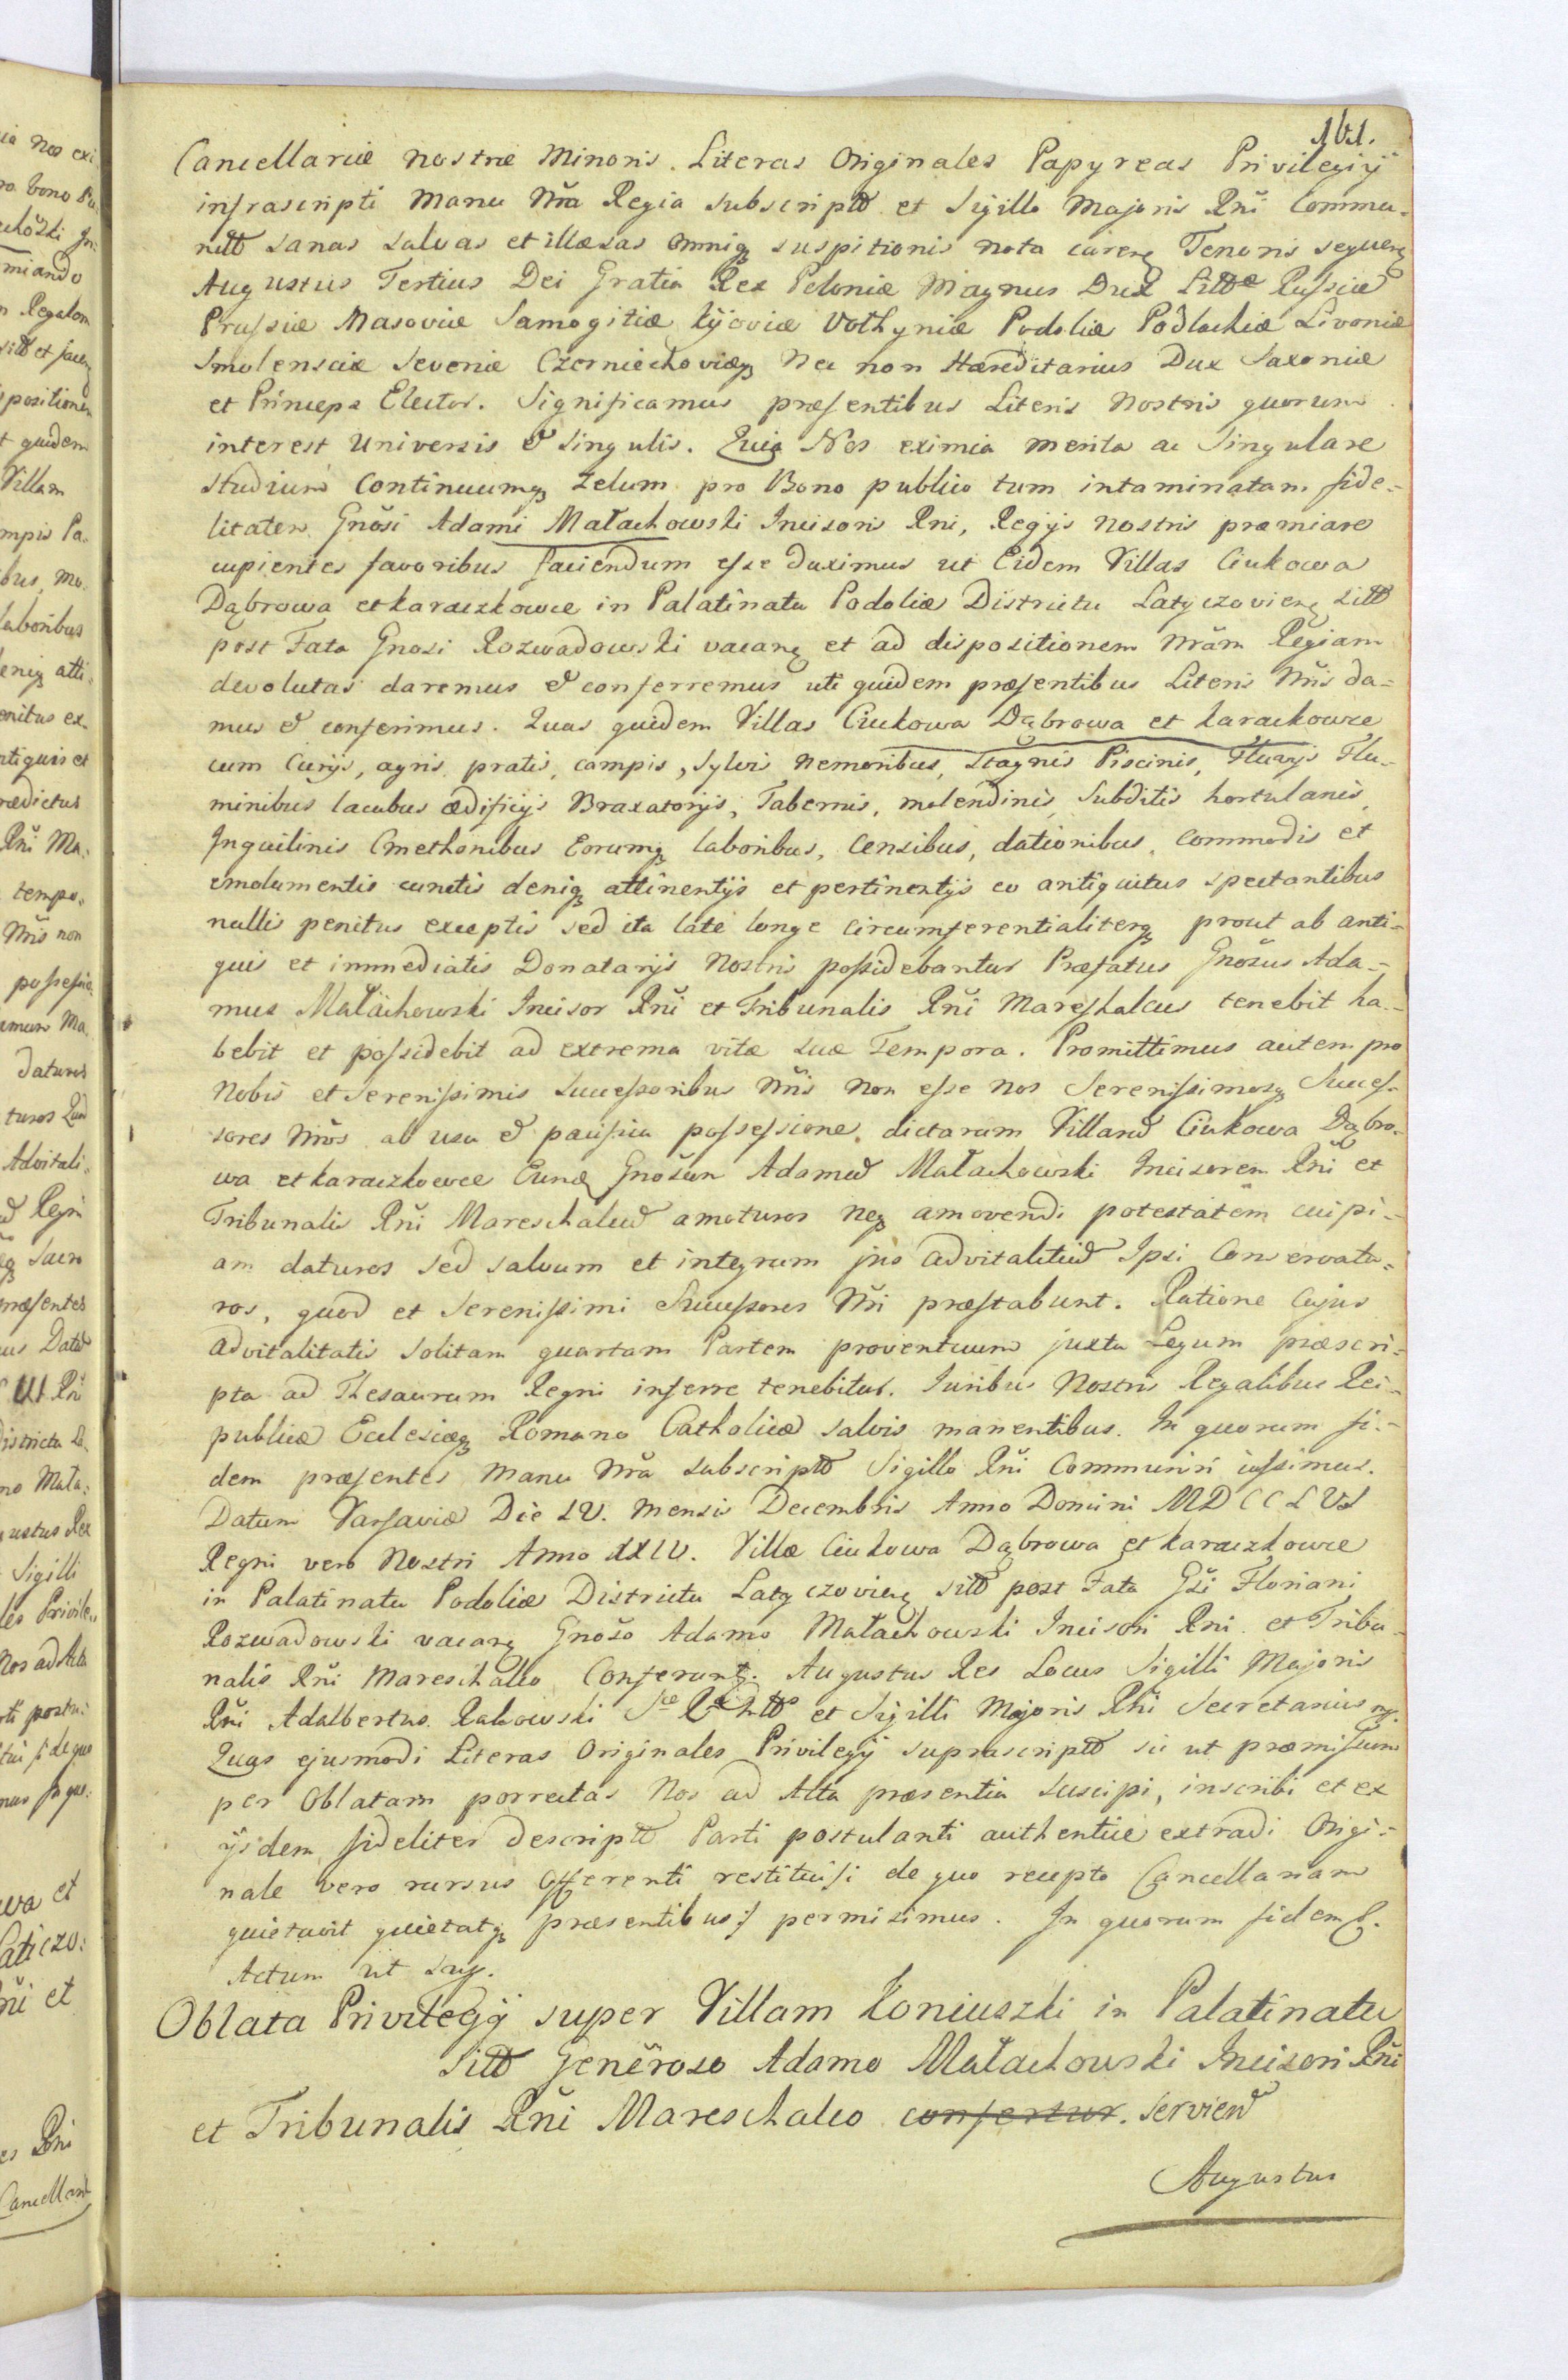 161.
Cancellariæ nostræ Minoris. Literas Originales Papyreas Privilegij
infrascripti Manu Nrã Regia subscriptõ et Sigillo Majoris Rni Commu-
nitõ sanas salvas et illæsas omniq suspitionis nota carenq Tenoris sequenq
Augustus Tertius Dei Gratia Rex Poloniæ Magnus Dux Littõæ Russiæ
Prussiæ Masoviæ Samogitiæ Kijoviæ Volhyniæ Podoliæ Podlachiæ Livoniæ
Smolensciæ Severiæ Czerniechoviæq Nec non Hæreditarius Dux Saxoniæ
et Princeps Elector. Significamus præsentibus Literis Nostris quorum
interest Universis & Singulis. Quia Nos eximia merita ac Singulare
studium Continuumq Zelum pro Bono publico tum intaminatam fide-
litatem Gnõsi Adami Małachowski Incisoris Rni, Regijs nostris præmiare
cupientes favoribus faciendum esse duximus ut Eidem Villas Ciukowa
Dąbrowa et Karaczkowce in Palatinatu Podoliæ Districtu Latyczovienq sittõ
post Fata Gnosi Rozwadowski vacanq et ad dispositionem Nrãm Regiam
devolutas daremus & conferremus uti quidem præsentibus Literis Nris da-
mus & conferimus. Quas quidem Villas Ciukowa Dąbrowa et Karackowce
cum Curijs, agris, pratis, campis, sylvis nemoribus, Stagnis Piscinis, Fluvijs Flu-
minibus lacubus ædificijs Braxatorijs, Tabernis, molendinis, Subditis hortulanis,
Inquilinis Cmethonibus Eorumq laboribus, Censibus, dationibus, Commodis et
emolumentis cunctis deniq attinentijs et pertinentijs eo antiquitus spectantibus
nullis penitus exceptis sed ita late longe circumferentialiterq prout ab anti-
quis et immediatis Donatarijs Nostris possidebantur Præfatus Gnõsus Ada-
mus Małachowski Incisor Rni et Tribunalis Rni Mareshalcus tenebit ha-
bebit et possidebit ad extrema vitæ suæ Tempora. Promittimus autem pro
Nobis et Serenissimis Successoribus Nris Non esse Nos Serenissimosq Succes-
sores Nros ab usu & pacifica possessione dictarum Villarum Ciukowa Dąbro-
wa et Karaczkowce Eundq Gnõsum Adamum Małachowski Incisorem Rni et
Tribunalis Rni Mareschalcum amoturos neq amovendi potestatem cuipi-
am daturos sed salvum et integrum jus advitalitium Ipsi Conservatu-
ros, quod et Serenissimi Successores Nri præstabunt. Ratione Cujus
advitalitatis solitam quartam Partem proventuum juxta Legum præscri-
pta ad Thesaurum Regni inferre tenebitur. Juribus Nostris Regalibus Rei-
publicæ Ecclesiæq Romano Catholicæ salvis manentibus. In quorum fi-
dem præsentes Manu Nrã subscriptõ Sigillo Rni Communiri iussimus.
Datum Varsaviæ Die IV. Mensis Decembris Anno Domini MDCCLVI
Regni vero Nostri Anno XXIV. Villæ Ciukowa Dąbrowa et Karaczkowce
in Palatinatu Podoliæ Districtu Latyczovienq sittõ post Fata Gsi Floriani
Rozwadowski vacanq Gnõso Adamo Małachowski Incisori Rni et Tribu-
nalis Rni Mareschalco Conferuntq. Augustus Rex Locus Sigilli Majoris
Rni Adalbertus Rakowski et Sigilli Majoris Rni Secretarius
Quas ejusmodi Literas Originales Privilegij suprascriptõ sic ut præmissum
per Oblatam porrectas Nos ad Acta præsentia suscipi, inscribi et ex
ijsdem fideliter descriptõ Parti postulanti authentice extradi Origi-
nale vero rursus Offerenti restitui /: de quo recepto Cancellariam
quietavit quietatq præsentibus :/ permisimus. In quorum fidem &.
Actum ut sup.
Oblata Privilegij super Villam Koniuszki in Palatinatu
Sittõ Generoso Adamo Małachowski Incisori Rni
et Tribunalis Rni Mareschalco confertur. Serviend
Augustus